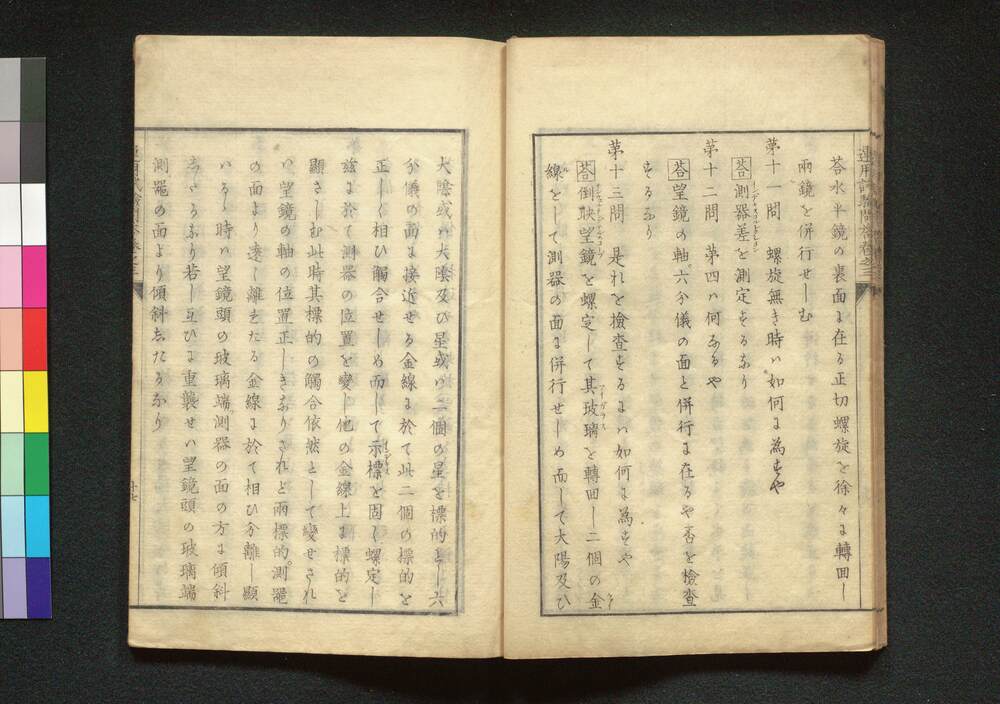 荅水半鏡の裏面に在る正切螺旋を徐々に轉回し
兩鏡を併行せしむ
第十一問　螺旋無き時ハ如何に為すや
荅測器差を測定するなり
第十二問　第四ハ何なるや
荅望鏡の軸六分儀の面と併行に在るや否を檢査
するなり
第十三問　是れを檢査するにハ如何に為すや
荅倒映望鏡を螺定して其玻璃を轉回し二個の金
線をして測器の面に併行せしめ而して大陽及ひ
大陰或ハ大陰及ひ星或ハ二個の星を標的とし六
分儀の面に接近せる金線に於て此二個の標的を
正しく相ひ觸合せしめ而して示標を固く螺定し
茲に於て測器の位置を變し他の金線上に標的を
顯さしむ此時其標的の觸合依然として變せされ
ハ望鏡の軸の位置正しきなりされと兩標的測噐
の面より遠く離れたる金線に於て相ひ分離し顯
ハるゝ時ハ望鏡頭の玻璃端測器の面の方に傾斜
したるなり若し互ひに重襲せハ望鏡頭の玻璃端
測噐の面より傾斜したるなり